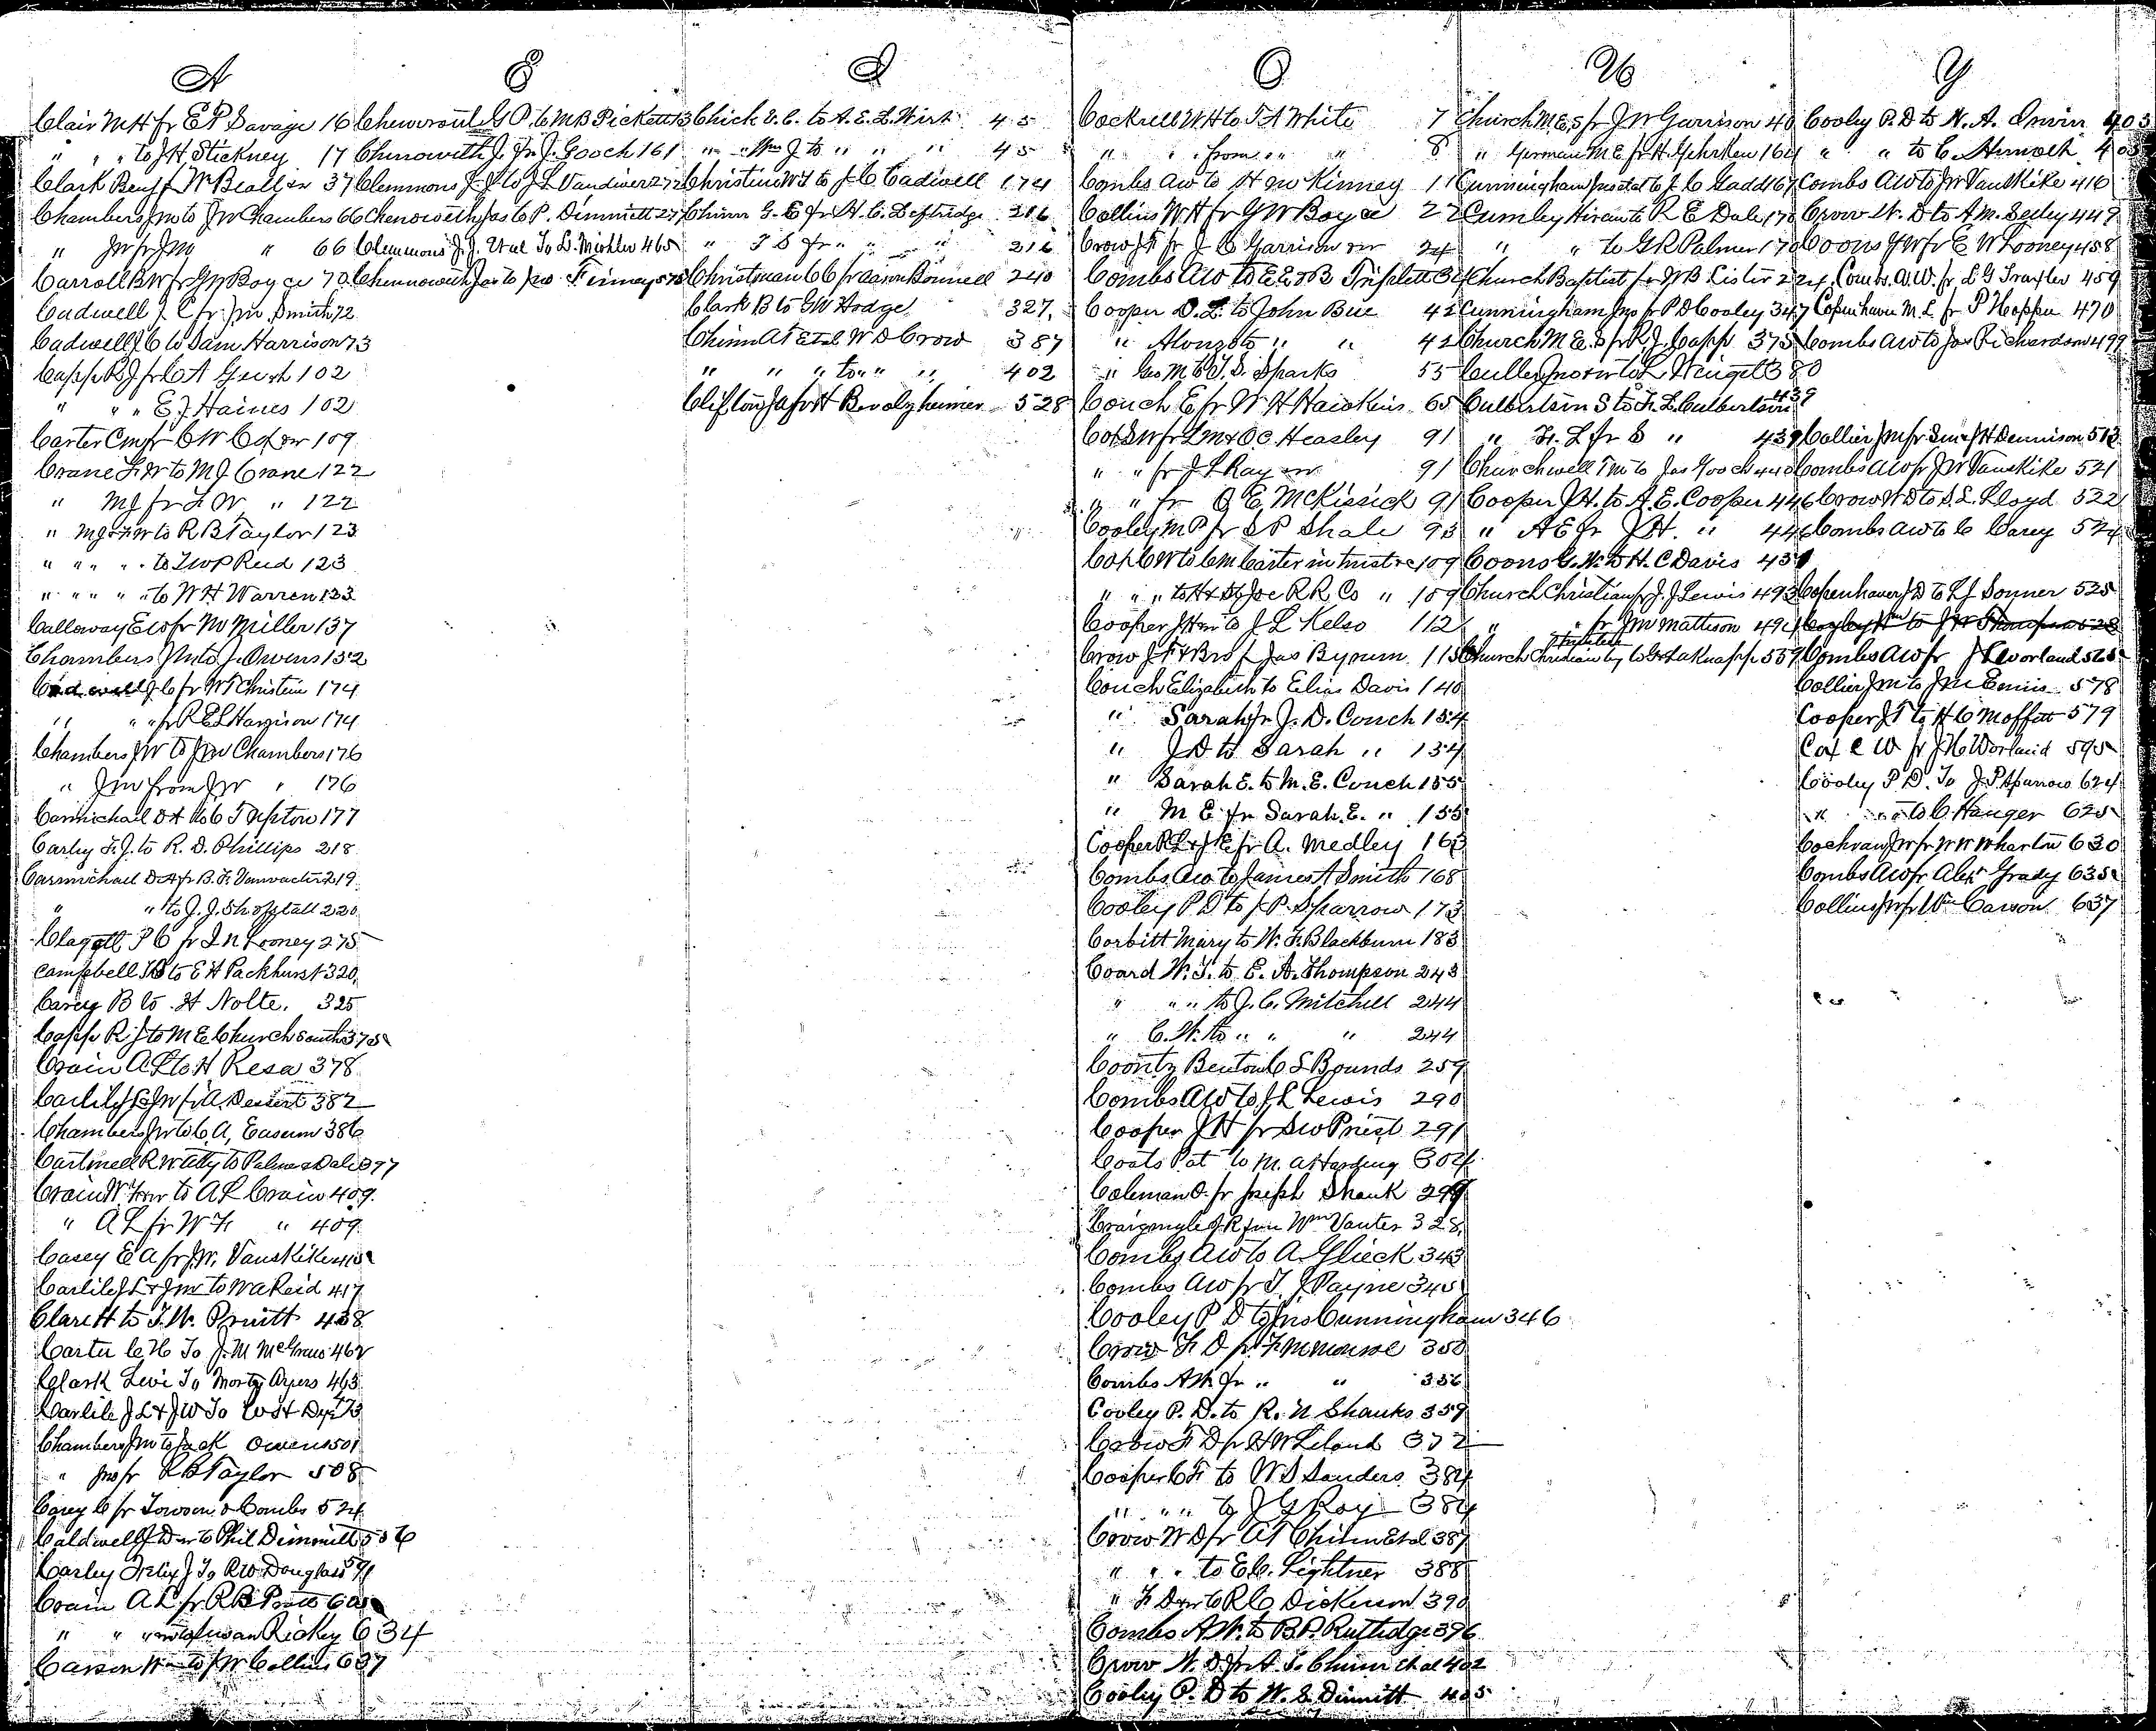 A
Clair M H fr E P Savage 16
" " " to J H Stickney 17
Clark Benj f W Beall 37
Chambers Jm to Jn Chambers 66
" Jn fr Jm " 66
Carroll B W fr G W Boyce 70
Cadwell J C fr Jn. Smith 72
Cadwell J C to Sam Harrison 73
Capp R J fr C A Gush 102
" " " E J Haines 102
Carter C m fr C W Cox 109
Crane F W to M J Crane 122
" M J fr F W " 122
" M J & F W to R B Taylor 123
" " " " to Reid 123
" " " " to W H Warren 133
Calloway E W fr M Miller 137
Chambers Jm to J. Owens 152
Cadwell J C fr W T Christian 174
" " " fr R E L Harrison 174
Chambers J W to Jm Chambers 176
" Jm from J W " 176
Carmichael D A to C T Upton 177
Carley F. J. to R. D. Phillips 218
Carmichael D A fr B. F. Vanvacter 219
" " to J. J. Shopstall 220
Clagett P C fr J N Looney 275
Campbell to E H Packhurst 320
Carey B to H Nolte. 325
Capp R J to M E Church South 375
Crain A L to H Resa 378
Carlile J L & J W fr A. Dessert 382
Chambers Jn to C. A. Eastern 386
Cartmell R W Atty to Palmer & Dale 397
Crain W F to A L Crain 409
" A L fr W F " 409
Casey E A fr J W. Vanskike 415
Carlile J L & Jm to W A Reid 417
Clare H to T. W. Pruitt 438
Carter C H To J. M McGraw 462
Clark Levi To Morty Ayers 463
Carlile J L & J W To 473
Chambers Jm to Jack Owens 501
" Jm fr R B Taylor 508
Carey C fr Towson & Combs 524
Caldwell J D to Phil Dimmitt 556
Carley Felix J To R W Douglass 571
Crain A L fr R B
" " " to Susan Rickey 634
Carson Wm to J W Collins 637
E
Chenoworth G P. to M B Pickett 13
Chenowith J. fr J. Gooch 161
Clemmons J. J. to J L Vandiver 272
Chenoweth Jas to P. Dimmitt 27
Clemmons J. J. Et al To D. Mishler 465
Chennoweth Jas to Jno Finney 575
I
Chick E. C. to A. E. L. Wirt 45
" " Wm J to " " " 45
Christian W T to J. C Cadwell 174
Chinn G. E fr H. C. Leftridge 216
" T S fr " " " 216
Christman C C fr Aaron Bonnell 240
Clark B to G W Hodge 327
Chinn A T Et al W D Crow 387
" " " to " " 402
Clifton J A fr H Berolzheimer 528
O
Cockrell W H to T A White 7
" " from " " 8
Combs A W to H McKinney 11
Collins W H fr G W Boyce 22
Crow J F fr J C Garrison 24
Combs A W to E E & B Triplett 34
Cooper D. L. to John Bue 42
" Alonzo to " " 42
" Geo M to T. D. Sparks 55
Couch E fr W H Hawkins 65
Cox S W fr L M & O C. Heasley 91
" " fr J L Ray 91
" " fr O. E. McKissick 91
Cooley M P fr S P Shale 93
Cox C W to C M Carter in trust 109
" " " to H & St Joe R R Co " 109
Cooper J H to J L Kelso 112
Crow J F & Bro f Jas Bynum 115
Couch Elizabeth to Elias Davis 140
" Sarah fr J. D. Couch 154
" J D to Sarah " 154
" Sarah E. to M. E. Couch 155
" M E fr Sarah. E. " 155
Cooper R L & J E fr A. Medley 163
Combs A W to James A Smith 168
Cooley P D to J. P. Sparrow 173
Corbitt Mary to W. F. Blackburn 183
Coard W. T. to E. A. Thompson 243
" " " to J. C. Mitchell 244
" C. W. to " " " 244
Coontz Benton to S Bounds 259
Combs A W to J L Lewis 290
Cooper J H fr S W Priest 291
Coats Pat to M. A Harding 304
Coleman O. fr Joseph Shank 299
Craigmyle J R from Wm Vanter 328
Combs A W to A. Glick 343
Combs A W fr T. J Payne 345
Cooley P D to Jno Cunningham 346
Crow F D fr F M Monroe 350
Combs A W fr " " 356
Cooley P. D. to R. N Shanks 359
Crow F D fr H W Leland 372
Cooper C F. to W. S Sanders 384
" " " to J G Ray 384
Crow W D fr A T Chinn Et al 387
" " " to E C. Lightner 388
" F D to R C Dickerson 390
Combs A W. to B. P. Ruttidge 396
Crow W. D. fr A. T. Chinn et al 402
Cooley P. D to W. S. Dimmitt 405
U
Church M, E, S fr J W Garrison 40
" German M E fr H. Gehrken 164
Cunningham Jno et al to J. C Gadd 167
Cumley Hiram to R E Dale 170
" " to G R Palmer 170
Church Baptist fr J W B Lister 224
Cunningham Jno fr P D Cooley 347
Church M E. S fr R J. Capp 375
Culler to L Wingett 380
Culbertson S to F. L. Culbertson 439
" F. L fr S " 439
Churchwell T M to Jas Gooch 440
Cooper J H. to A. E. Cooper 446
" A E fr J H. " 446
Coons G. W. to H. C Davis 451
Church Christian fr J. J Lewis 493
" " fr J M Mattison 494
Church Christian by Trustees to Geo A Knapp 559
Y
Cooley P. D to N. A. Irwin 403
" " to C. Armock 405
Combs A W to J W Vanskike 416
Crow W. D to A M. Seeley 449
Coons J W fr E W Looney 458
Combs. A. W. fr. L G Traxler 459
Copenhaver M. L. fr P Happen 470
Combs A W to Jas Richardson 499
Collier J M fr J H Dennison 512
Combs A W fr J W Vanskike 521
Crow W D to S. L. Lloyd 522
Combs A W to C Carey 524
Copenhaver J D to L J Sonner 525
Cooley to J W Thompson 528
Combs A W fr J C Worland 565
Collier J M to J M Ennis 578
Cooper J T to H C Moffett 579
Cox C W fr J C Worland 595
Cooley P D. To J. P. Sparrow 624
" " " to C Hanger 625
Cochran J W fr W W Wharton 630
Combs A W fr Alex Grady 635
Collins J W fr Wm Carson 637